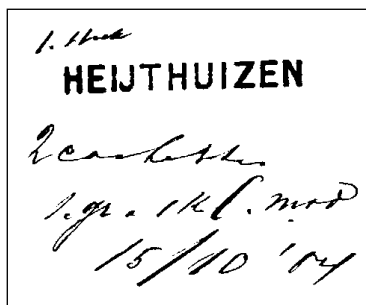 1. stuk
HEIJTHUIZEN
2 cachetten
1. gr. 1 kl. mod
15/10 '04